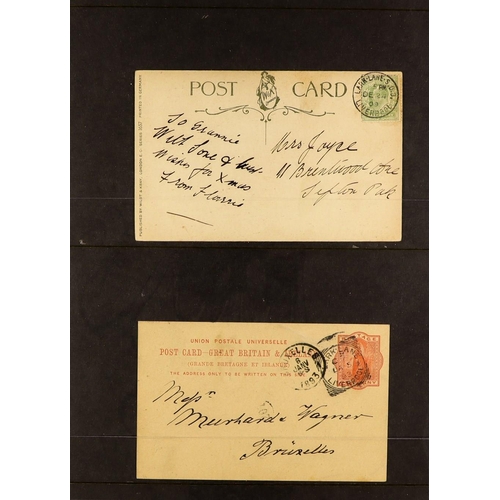 POST CARD
LARK-LANE-S.O.
DE 24
LIVERPOOL
To Grannie
With Love &
Wishes for Xmas
From Florris
Mrs Joyce
11 Brentwood Ave
Sefton Park
UNION POSTALE UNIVERSELLE
POST CARD—GREAT BRITAIN &
(GRANDE BRETAGNE ET IRLANDE)
THE ADDRESS ONLY TO BE WRITTEN ON THIS
8
JANV
1893
LIVERPOOL
Messrs
Meerhard & Wagner
Brüxelles